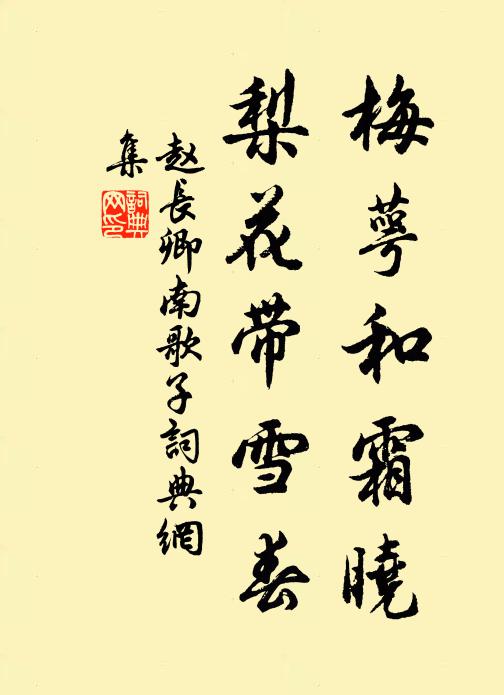 梅萼和霜曉
梨花带雪春
赵長卿南歌子詞典網
集
詞典
网印